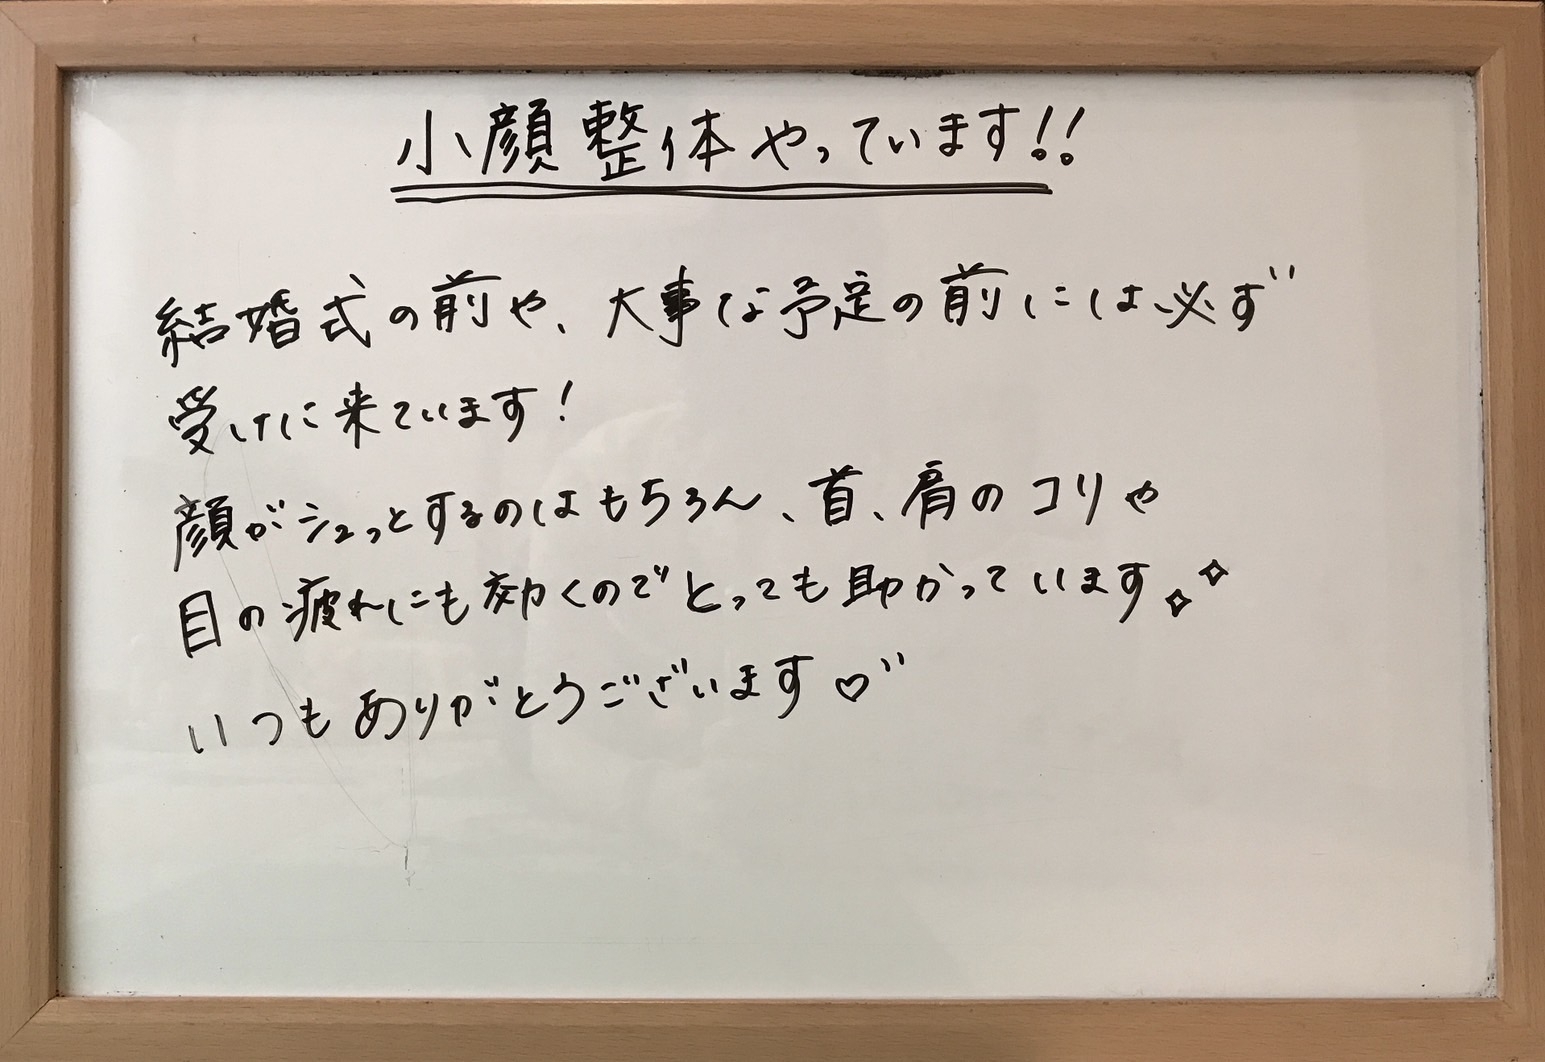 小顔整体やっています!!
結婚式の前や、大事な予定の前には必ず
受けに来ています!
顔がシュっとするのはもちろん、首、肩のコリや
目の疲れにも効くのでとっても助かっています✧✧
いつもありがとうございます♡"